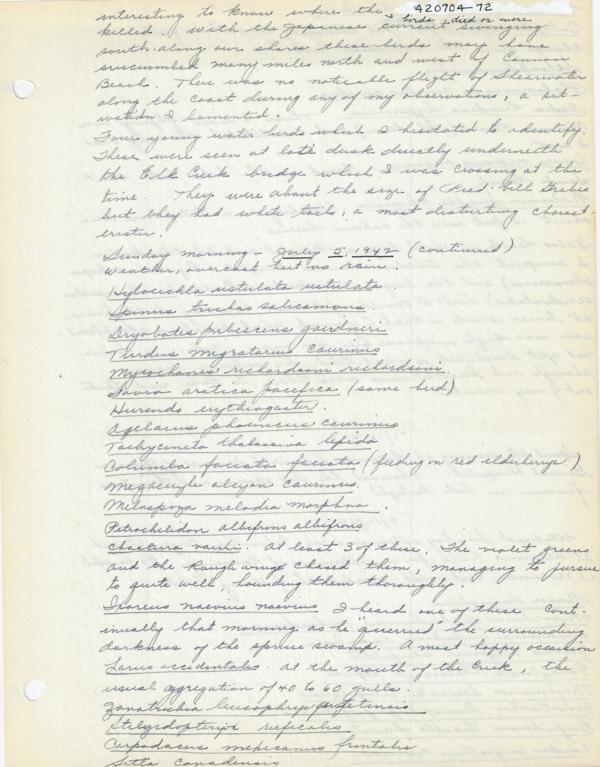 420704-72
interesting to know where the birds died or were
killed. With the Japanese current swinging
south along our shores these birds may have
succumbed many miles north and west of Cannon
Beach. There was no noticeable flight of Shearwater
along the coast during any of my observations, a sit-
uation I lamented.
Four young water birds which I hesitated to identify.
These were seen at late dusk directly underneath
the Elk Creek bridge which I was crossing at the
time. They were about the size of Pied-bill Grebes
but they had white tails, a most disturbing charact-
eristic.
Sunday morning - July 5, 1942 (continued)
Weather, overcast but no rain.
Hylocichla ustulata ustulata.
Spinus salicamans.
Dryobates pubescens gairdneri
Turdus migratorius caurinus
Myiochanes richardsoni richardsoni.
Gavia arctica pacifica (same bird)
Hirundo erythrogaster.
Agelaius phoeniceus caurinus
Tachycineta thalassina lepida
Columba fasciata fasciata (feeding on red elderberrys.)
Megaceryle alcyon caurina.
Melospiza melodia morphna.
Petrochelidon albifrons albifrons
Chaetura vauxi. At least 3 of these. The violet greens
and the Rough wings chased them, managing to pursue
to quite well, hounding them thoroughly.
Ixoreus naevius naevius. I heard one of these cont-
inually that morning as he "querried" the surrounding
darkness of the spruce swamp. A most happy occasion
Larus occidentalis. At the mouth of the Creek, the
usual aggregation of 40 to 60 gulls.
Zonotrichia leucophrys pugetensis
Stelgidopteryx ruficollis
Carpodacus mexicanus frontalis
Sitta canadensis